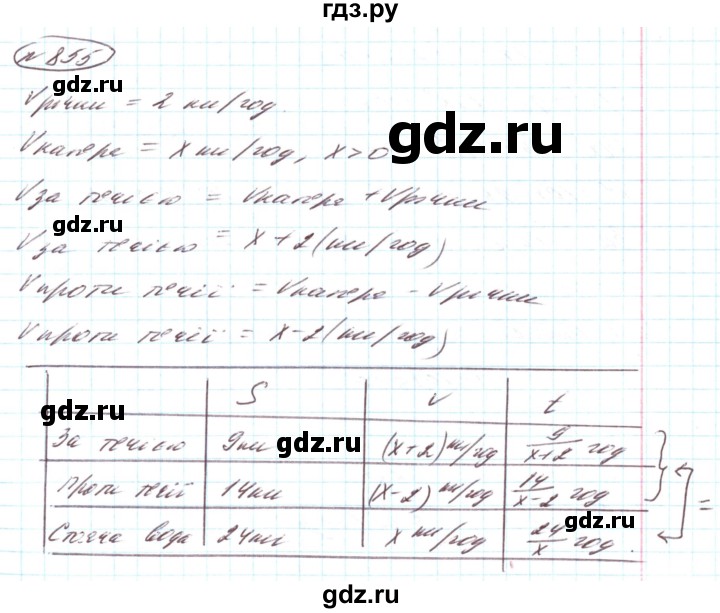 гдз.ру
№ 855
gdz.ru
Vрічки = 2 км/год.
Vкатера = x км/год, x > 0
gdz.ru
Vза течією = Vкатера + Vрічки
gdz.ru
Vза течією = x + 2 (км/год)
Vпроти течії = Vкатера - Vрічки
Vпроти течії = x - 2 (км/год)
S V t
gdz.ru
gdz.ru
За течією 9км (x+2) км/год 9/(x+2) год
Проти течії 14км (x-2) км/год 14/(x-2) год =
gdz.ru
Стояча вода 24км x км/год 24/x год.
gdz.ru